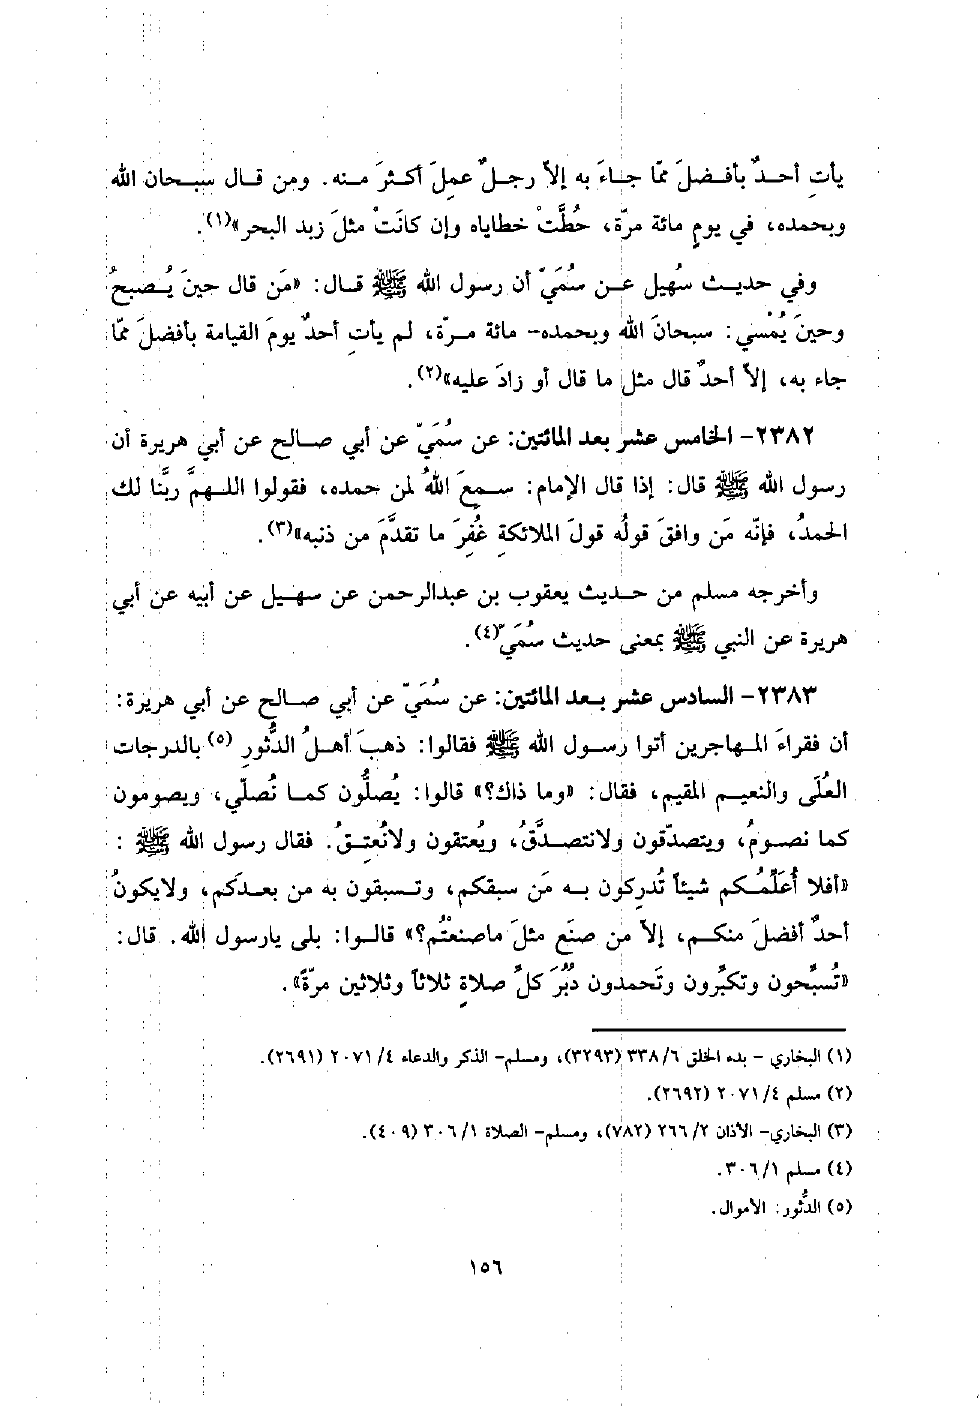 يأتِ أحـدٌ بأفـضلَ ممّا جـاءَ به إلاّ رجـلٌ عمِلَ أكـثرَ مـنه. ومن قـال سـبـحان الله
وبحمده، في يومٍ مائة مرّة، حُطَّتْ خطاياه وإن كانَتْ مثلَ زبد البحر»(١).
وفي حديـث سُهيل عـن سُمَيّ أن رسول الله ﷺ قـال: «مَن قال حينَ يُـصبحُ
وحينَ يُمْسي: سبحانَ الله وبحمده- مائة مـرّة، لم يأتِ أحدٌ يومَ القيامة بأفضلَ ممّا
جاء به، إلاّ أحدٌ قال مثل ما قال أو زادَ عليه»(٢).
٢٣٨٢- الخامس عشر بعد المائتين: عن سُمَيّ عن أبي صـالح عن أبي هريرة أن
رسول الله ﷺ قال: إذا قال الإمام: سـمعَ اللهُ لمن حمده، فقولوا اللـهمَّ ربَّنا لك
الحمدُ، فإنّه مَن وافقَ قولُه قولَ الملائكةِ غُفِرَ ما تقدَّمَ من ذنبه»(٣).
وأخرجه مسلم من حـديث يعقوب بن عبدالرحمن عن سهـيل عن أبيه عن أبي
هريرة عن النبي ﷺ بمعنى حديث سُمَيّ(٤).
٢٣٨٣- السادس عشر بـعد المائتين: عن سُمَيّ عن أبي صـالح عن أبي هريرة:
أن فقراءَ المـهاجرين أتوا رسـول الله ﷺ فقالوا: ذهبَ أهلُ الدُّثورِ (٥) بالدرجات
العُلَى والنعيـم المقيم، فقال: «وما ذاك؟» قالوا: يُصلُّون كمـا نُصلّي، ويصومون
كما نصـومُ، ويتصدّقون ولانتصـدَّقُ، ويُعتقون ولانُعتـقُ. فقال رسول الله ﷺ :
«أفلا أُعَلِّمُـكم شيئاً تُدرِكون بـه مَن سبقكم، وتـسبقون به من بعـدَكم، ولايكونُ
أحدٌ أفضلَ منكـم، إلاّ من صنَع مثلَ ماصنعتُم؟» قالـوا: بلى يارسول الله. قال:
«تُسبِّحون وتكبِّرون وتَحمدون دُبُرَ كلِّ صلاةٍ ثلاثاً وثلاثين مرّةً».
(١) البخاري - بدء الخلق ٣٣٨/٦ (٣٢٩٣)، ومسلم- الذكر والدعاء ٢٠٧١/٤ (٢٦٩١).
(٢) مسلم ٢٠٧١/٤ (٢٦٩٢).
(٣) البخاري- الأذان ٢٦٦/٢ (٧٨٢)، ومسلم- الصلاة ٣٠٦/١ (٤٠٩).
(٤) مسلم ٣٠٦/١.
(٥) الدُّثور: الأموال.
١٥٦